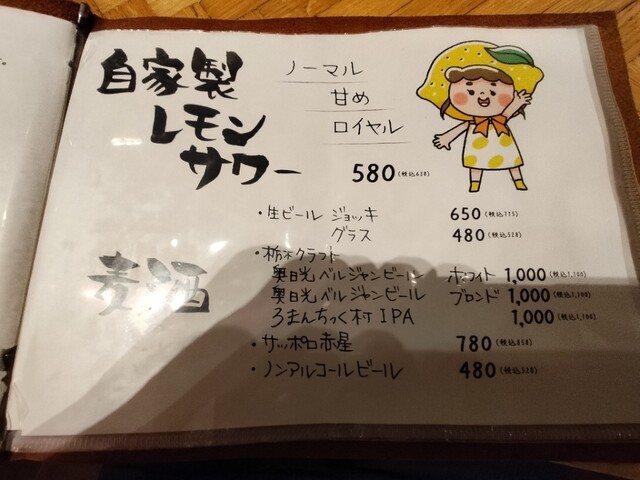 自家製
レモン
サワー
ノーマル
甘め
ロイヤル
580(税込638)
麦酒
・生ビール ジョッキ 650(税込715)
グラス 480(税込528)
・栃木クラフト
奥日光ベルジャンビール ホワイト 1,000(税込1,100)
奥日光ベルジャンビール ブロンド 1,000(税込1,100)
ろまんちっく村 IPA 1,000(税込1,100)
・サッポロ赤星 780(税込858)
・ノンアルコールビール 480(税込528)